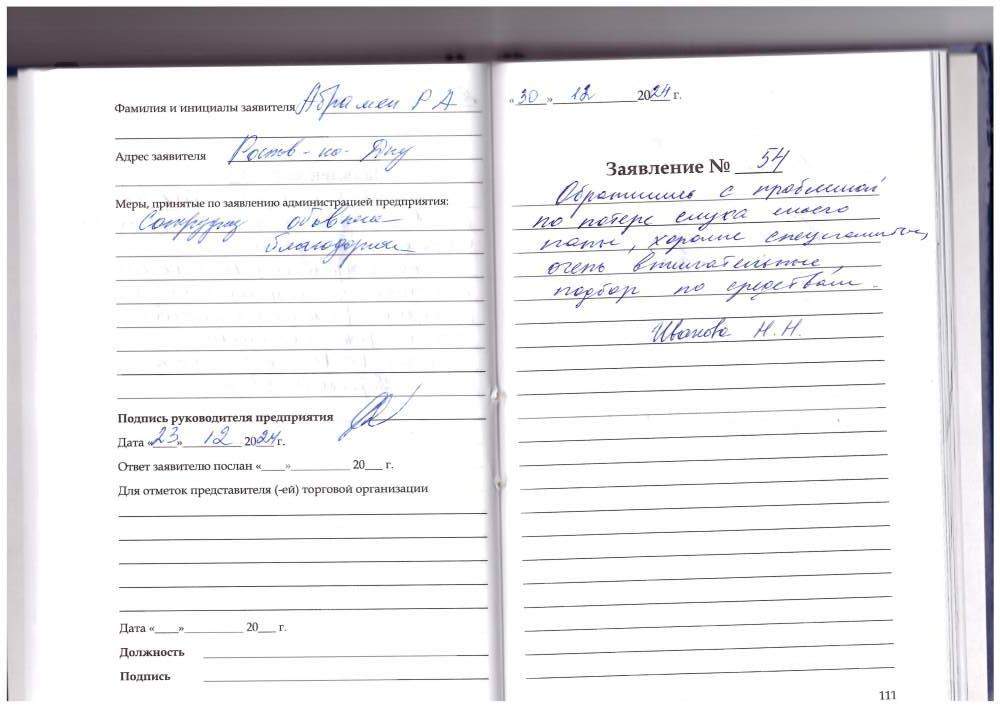 Фамилия и инициалы заявителя Абрамен Р А
Адрес заявителя Ростов-на-Дну
Меры, принятые по заявлению администрацией предприятия:
объявлена
благодарн
Подпись руководителя предприятия
Дата «23» 12 2024 г.
Ответ заявителю послан «____»__________ 20___ г.
Для отметок представителя (-ей) торговой организации
Дата «____»__________ 20___ г.
Должность
Подпись
«30» 12 2024 г.
Заявление № 54
Обратились с проблемой
по потере слуха моего
папы, хорошие специалисты,
очень внимательные,
подбор по средствам.
Иванова Н.Н.
111